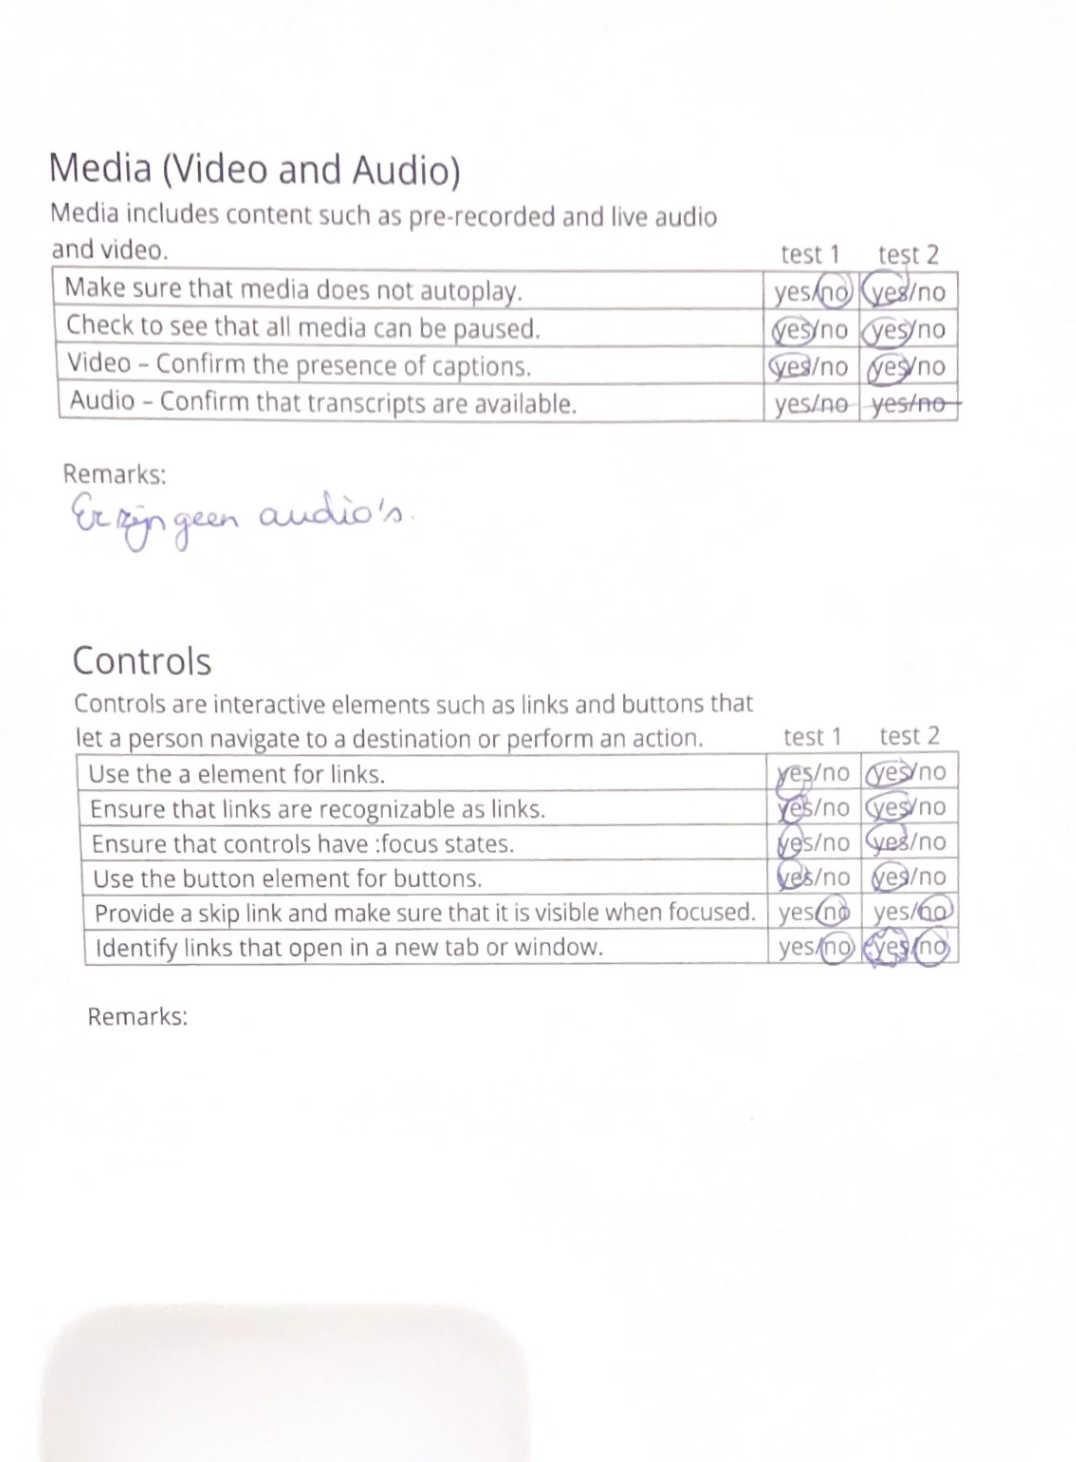 Media (Video and Audio)
Media includes content such as pre-recorded and live audio
and video. test 1 test 2
Make sure that media does not autoplay. yes/no yes/no
Check to see that all media can be paused. yes/no yes/no
Video – Confirm the presence of captions. yes/no yes/no
Audio – Confirm that transcripts are available. yes/no yes/no
Remarks:
Er zijn geen audio's.
Controls
Controls are interactive elements such as links and buttons that
let a person navigate to a destination or perform an action. test 1 test 2
Use the a element for links. yes/no yes/no
Ensure that links are recognizable as links. yes/no yes/no
Ensure that controls have :focus states. yes/no yes/no
Use the button element for buttons. yes/no yes/no
Provide a skip link and make sure that it is visible when focused. yes/no yes/no
Identify links that open in a new tab or window. yes/no yes/no
Remarks: